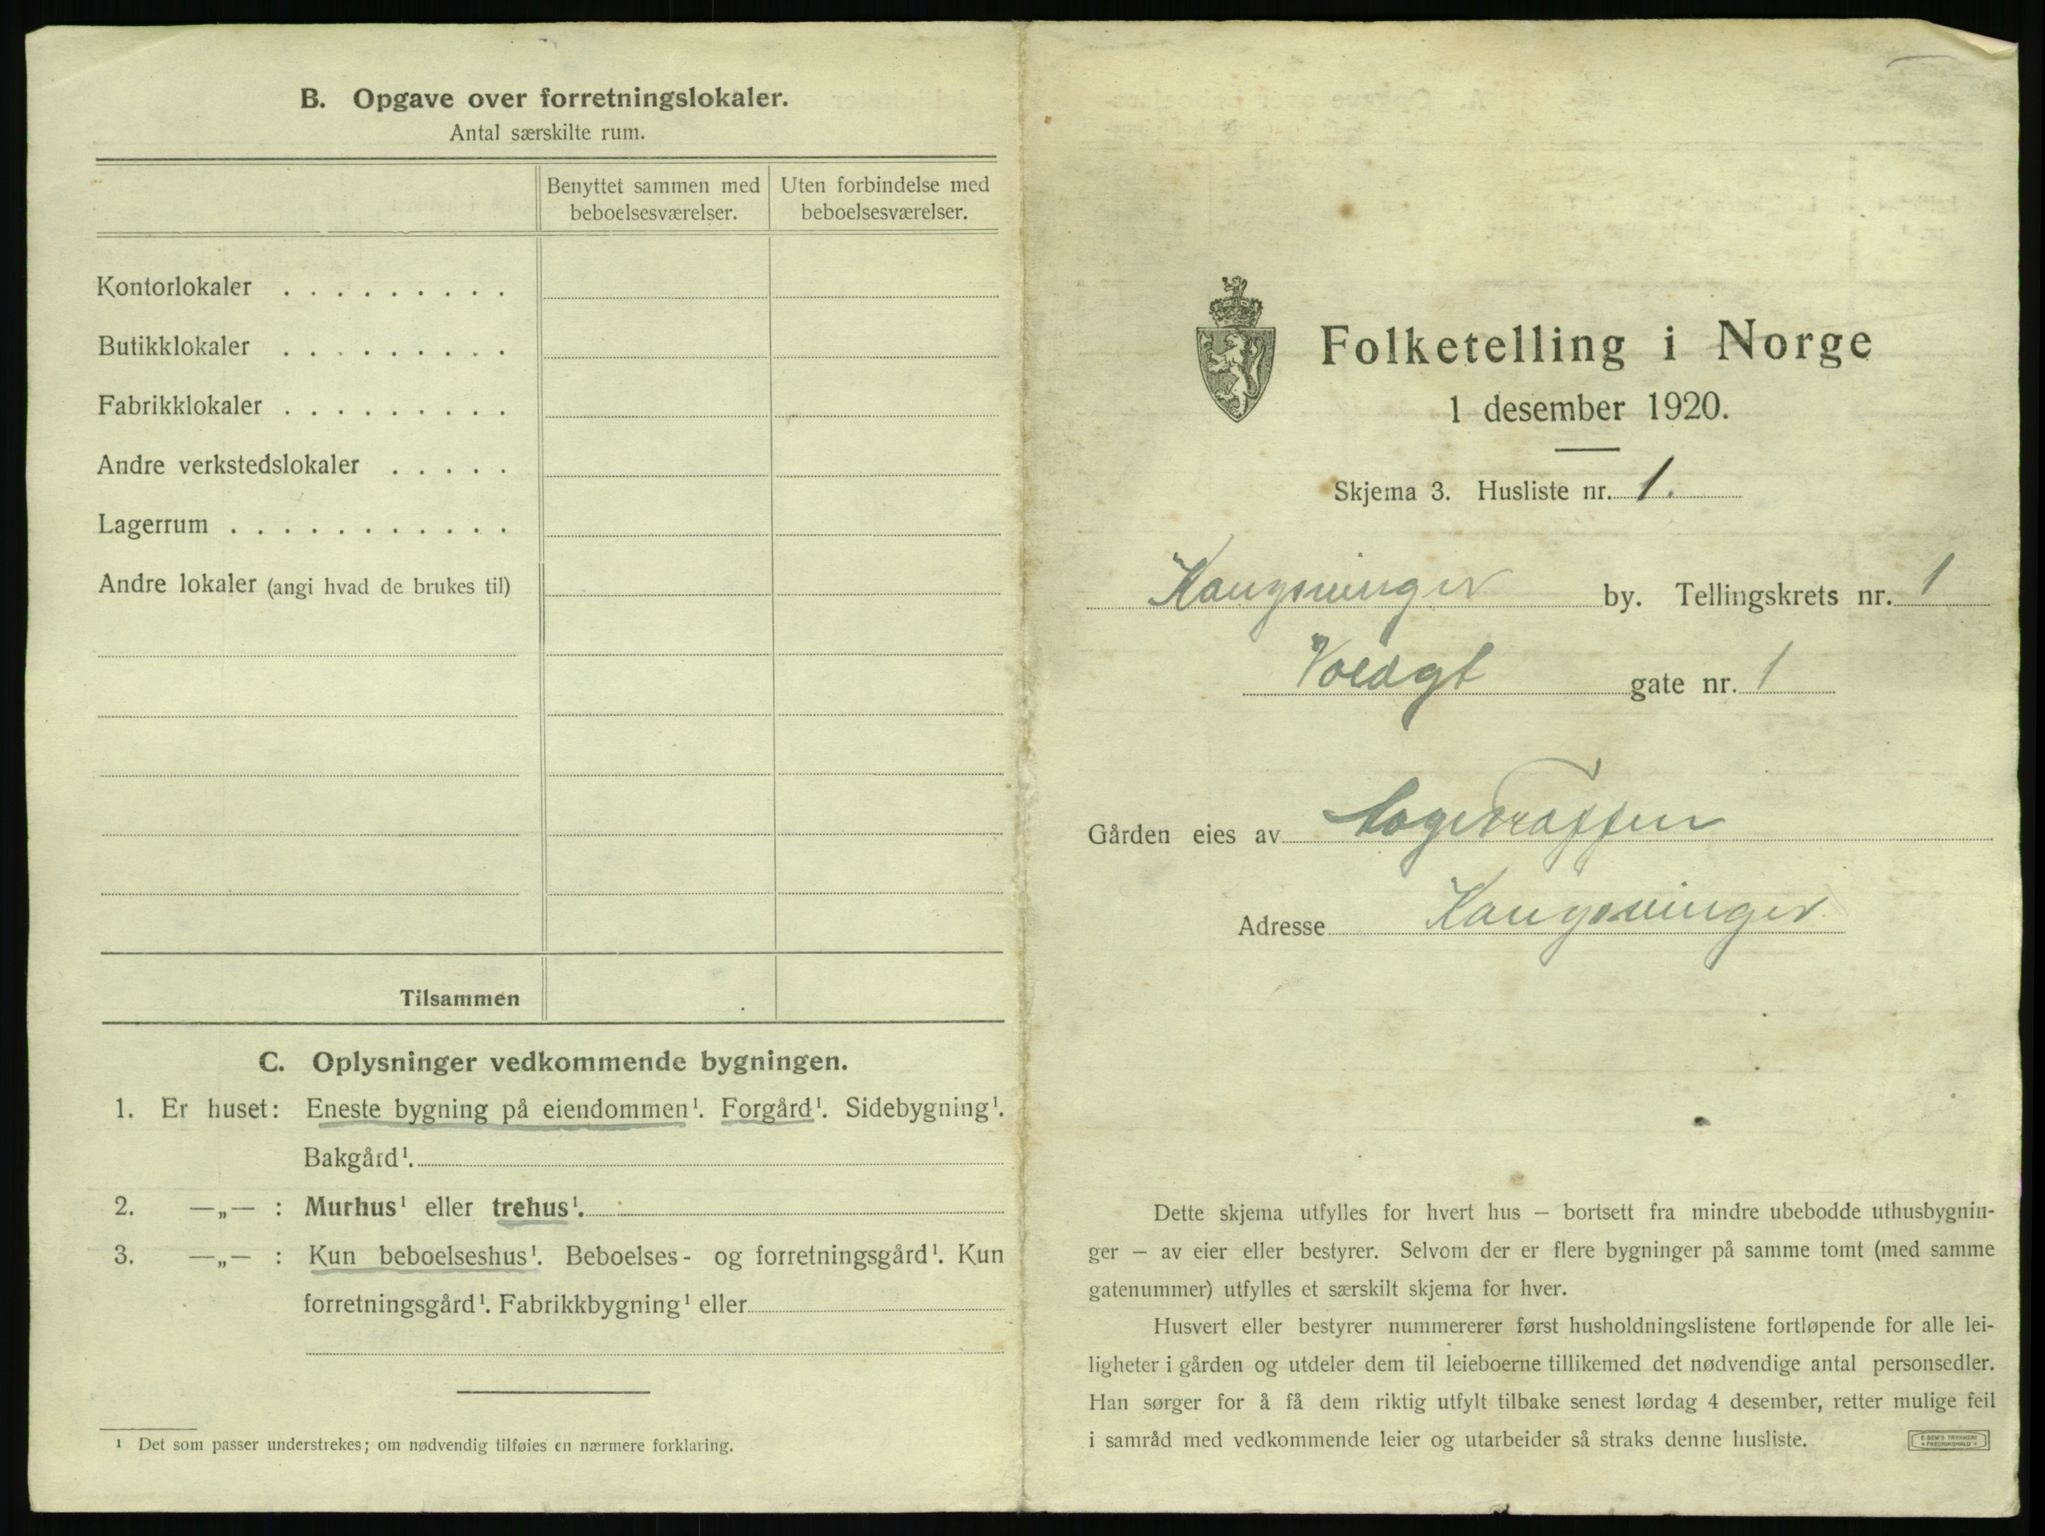 B. Opgave over forretningslokaler.
Antal særskilte rum.
Benyttet sammen med beboelsesværelser.
Uten forbindelse med beboelsesværelser.
Kontorlokaler . . . . . . . . .
Butikklokaler . . . . . . . . .
Fabrikklokaler . . . . . . . . .
Andre verkstedslokaler . . . . .
Lagerrum . . . . . . . . . . .
Andre lokaler (angi hvad de brukes til)
Tilsammen
C. Oplysninger vedkommende bygningen.
1. Er huset: Eneste bygning på eiendommen¹. Forgård¹. Sidebygning¹.
Bakgård¹.
2. —„— : Murhus¹ eller trehus¹.
3. —„— : Kun beboelseshus¹. Beboelses- og forretningsgård¹. Kun
forretningsgård¹. Fabrikkbygning¹ eller
¹ Det som passer understrekes; om nødvendig tilføies en nærmere forklaring.
Folketelling i Norge
1 desember 1920.
Skjema 3. Husliste nr. 1.
Kongsvinger by. Tellingskrets nr. 1
Voldgt gate nr. 1
Gården eies av
Adresse Kongsvinger
Dette skjema utfylles for hvert hus – bortsett fra mindre ubebodde uthusbygnin-
ger – av eier eller bestyrer. Selvom der er flere bygninger på samme tomt (med samme
gatenummer) utfylles et særskilt skjema for hver.
Husvert eller bestyrer nummererer først husholdningslistene fortløpende for alle lei-
ligheter i gården og utdeler dem til leieboerne tillikemed det nødvendige antal personsedler.
Han sørger for å få dem riktig utfylt tilbake senest lørdag 4 desember, retter mulige feil
i samråd med vedkommende leier og utarbeider så straks denne husliste.
E. SEM'S TRYKKERI
FREDRIKSHALD